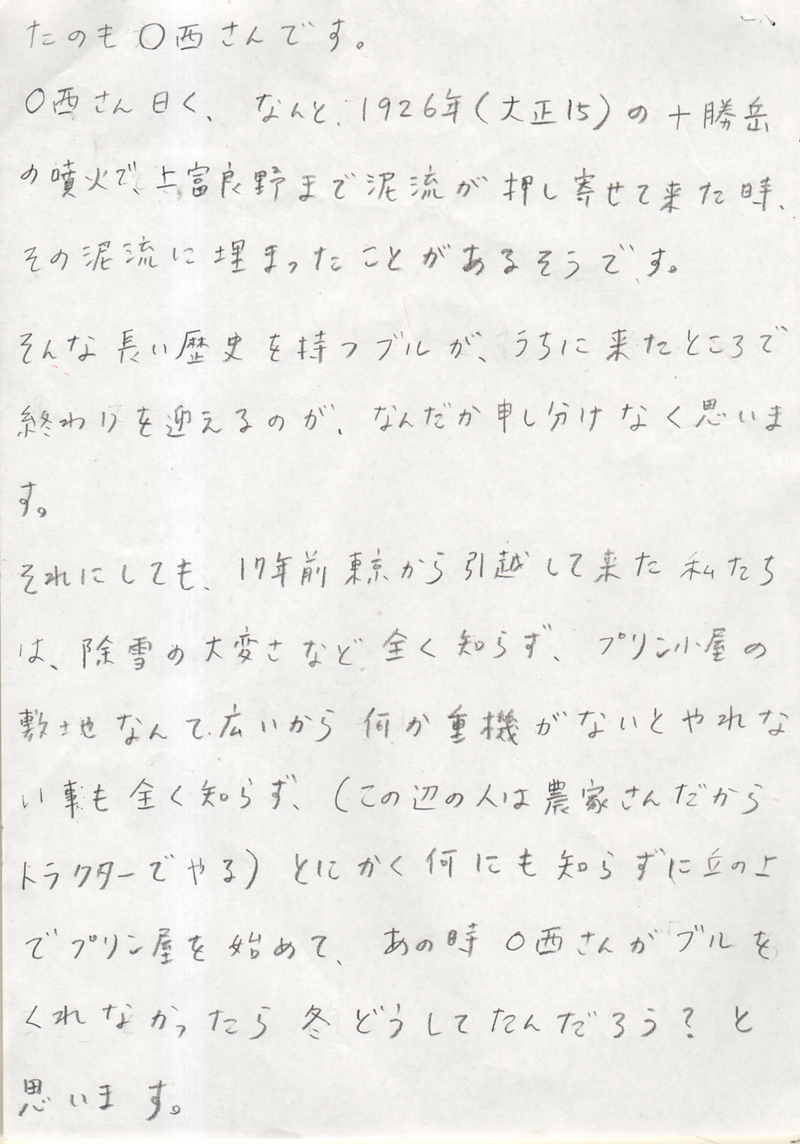 たのも〇西さんです。
〇西さん曰く、なんと、1926年(大正15)の十勝岳
の噴火で、上富良野まで泥流が押し寄せて来た時、
その泥流に埋まったことがあるそうです。
そんな長い歴史を持つブルが、うちに来たところで
終わりを迎えるのが、なんだか申し分けなく思いま
す。
それにしても、17年前東京から引越して来た私たち
は、除雪の大変さなど全く知らず、プリン小屋の
敷地なんて広いから何か重機がないとやれな
い事も全く知らず、(この辺の人は農家さんだから
トラクターでやる)とにかく何にも知らずに丘の上
でプリン屋を始めて、あの時〇西さんがブルを
くれなかったら冬どうしてたんだろう?と
思います。